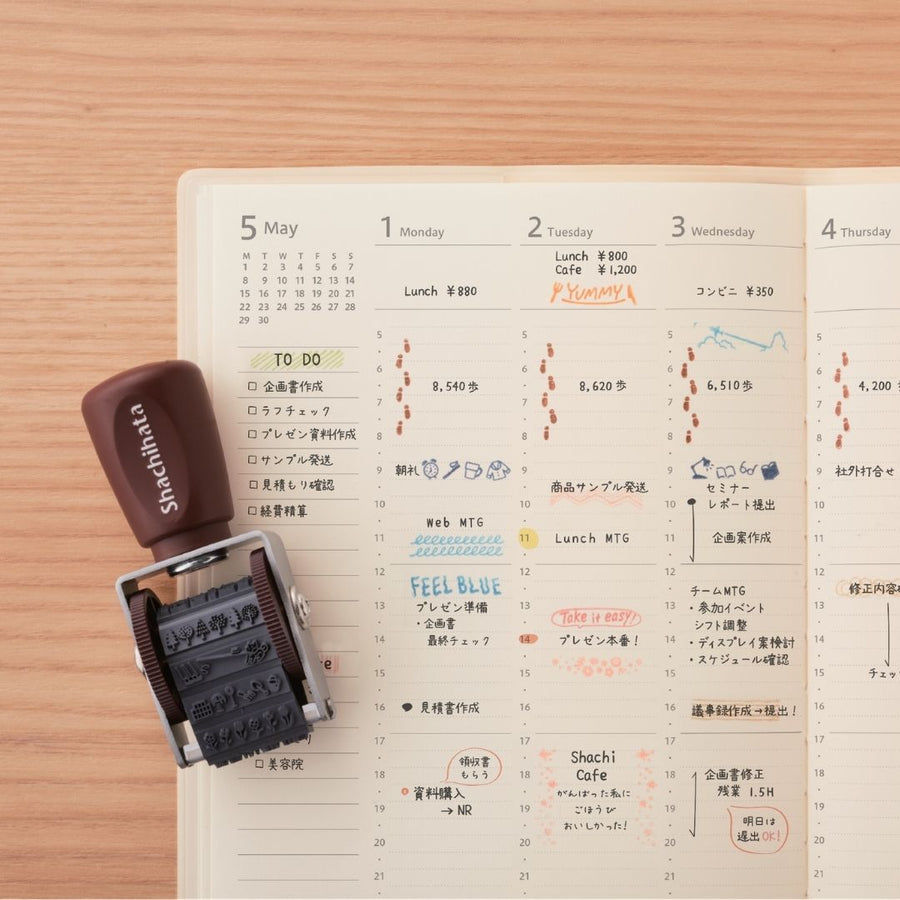 5 May
M T W T F S S
1 2 3 4 5 6 7
8 9 10 11 12 13 14
15 16 17 18 19 20 21
22 23 24 25 26 27 28
29 30
TO DO
□ 企画書作成
□ ラフチェック
□ プレゼン資料作成
□ サンプル発送
□ 見積もり確認
□ 経費精算
□ 美容院
Shachihata
1 Monday
Lunch ¥880
5
6
8,540歩
7
8
9 朝礼
10
Web MTG
11
12
FEEL BLUE
13 プレゼン準備
・企画書
14 最終チェック
15
16 見積書作成
17
領収書
もらう
18
資料購入
19 → NR
20
21
2 Tuesday
Lunch ¥800
Cafe ¥1,200
YUMMY
5
6
8,620歩
7
8
9
商品サンプル発送
10
11 Lunch MTG
12
13 Take it easy!
14 プレゼン本番!
15
16
17
Shachi
18 Cafe
がんばった私に
19 ごほうび
おいしかった!
20
21
3 Wednesday
コンビニ ¥350
5
6
6,510歩
7
8
9
セミナー
10 レポート提出
11 企画案作成
12
チームMTG
13 ・参加イベント
シフト調整
14 ・ディスプレイ案検討
・スケジュール確認
15
16 議事録作成→提出!
17
18 企画書修正
残業 1.5H
19
明日は
20 遅出OK!
21
4 Thursday
5
6
4,200
7
8
9 社外打合せ
10
11
12
修正内容
13
14
15 チェッ
16
17
18
19
20
21